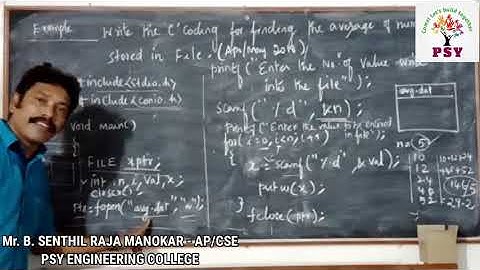 Example Write the 'C' Coding for finding the average of num
stored in file. (Apr/may 2018)
#include<stdio.h>
#include<conio.h>
void main()
{
FILE *ptr;
int n, i, val, x;
clrscr();
ptr=fopen("avg.dat","w");
printf("Enter the No. of value
into the file");
scanf("%d", &n);
printf("Enter the value to be entered
in file");
{
scanf("%d", &val);
putw(
}
fclose(ptr);
avg.dat
n=5
10
12
Come! Let's build together
PSY
Mr. B. SENTHIL RAJA MANOKAR - AP/CSE
PSY ENGINEERING COLLEGE